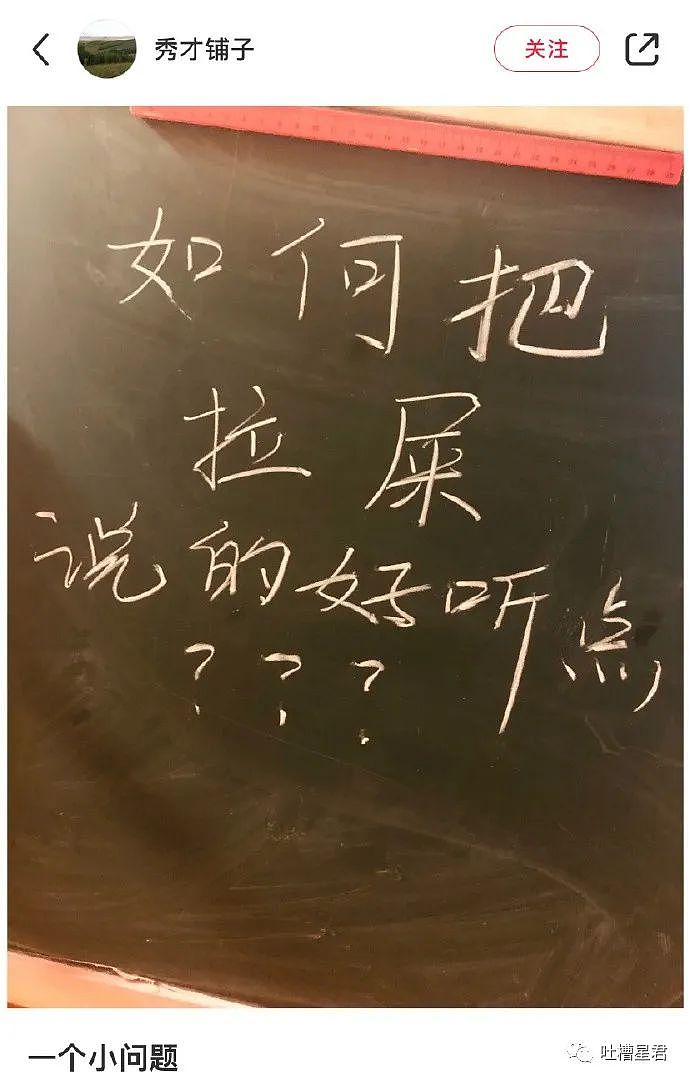 秀才铺子
关注
如何把
拉屎
说的好听点
???
一个小问题
吐槽星君